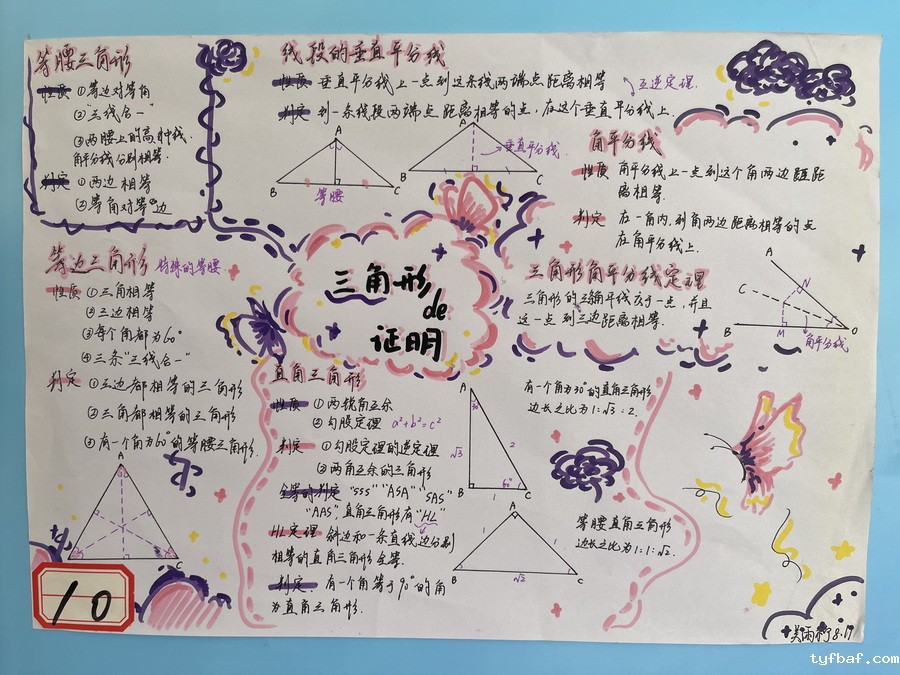 等腰三角形
性质 ①等边对等角
②"三线合一"
③两腰上的高、中线、
角平分线分别相等.
判定 ①两边相等
②等角对等边
线段的垂直平分线
性质 垂直平分线上一点到这条线两端点距离相等
判定 到一条线段两端点距离相等的点，在这个垂直平分线上.
互逆定理.
A
B
C
等腰
A
B
C
垂直平分线
角平分线
性质 角平分线上一点到这个角两边距距
离相等.
判定 在一角内，到角两边距离相等的点
在角平分线上.
三角形角平分线定理
三角形的三条角平线交于一点，并且
这一点到三边距离相等.
A
N
C
B
M
O
角平分线
三角形
de
证明
等边三角形 特殊的等腰
性质 ①三角相等
②三边相等
③每个角都为60°
④三条"三线合一"
判定 ①三边都相等的三角形
②三角都相等的三角形
③有一个角为60°的等腰三角形.
A
C
直角三角形
性质 ①两锐角互余
②勾股定理 a²+b²=c²
判定 ①勾股定理的逆定理
②两角互余的三角形
全等的判定 "SSS""ASA""SAS"
"AAS"直角三角形有"HL"
HL定理 斜边和一条直线边分别
相等的直角三角形全等.
判定. 有一个角等于90°的角
为直角三角形.
A
30°
√3
2
60°
B
1
C
有一个角为30°的直角三角形
边长之比为1:√3:2.
A
1
1
B
√2
C
等腰直角三角形
边长之比为1:1:√2.
10
8.19
tyfbaf.com